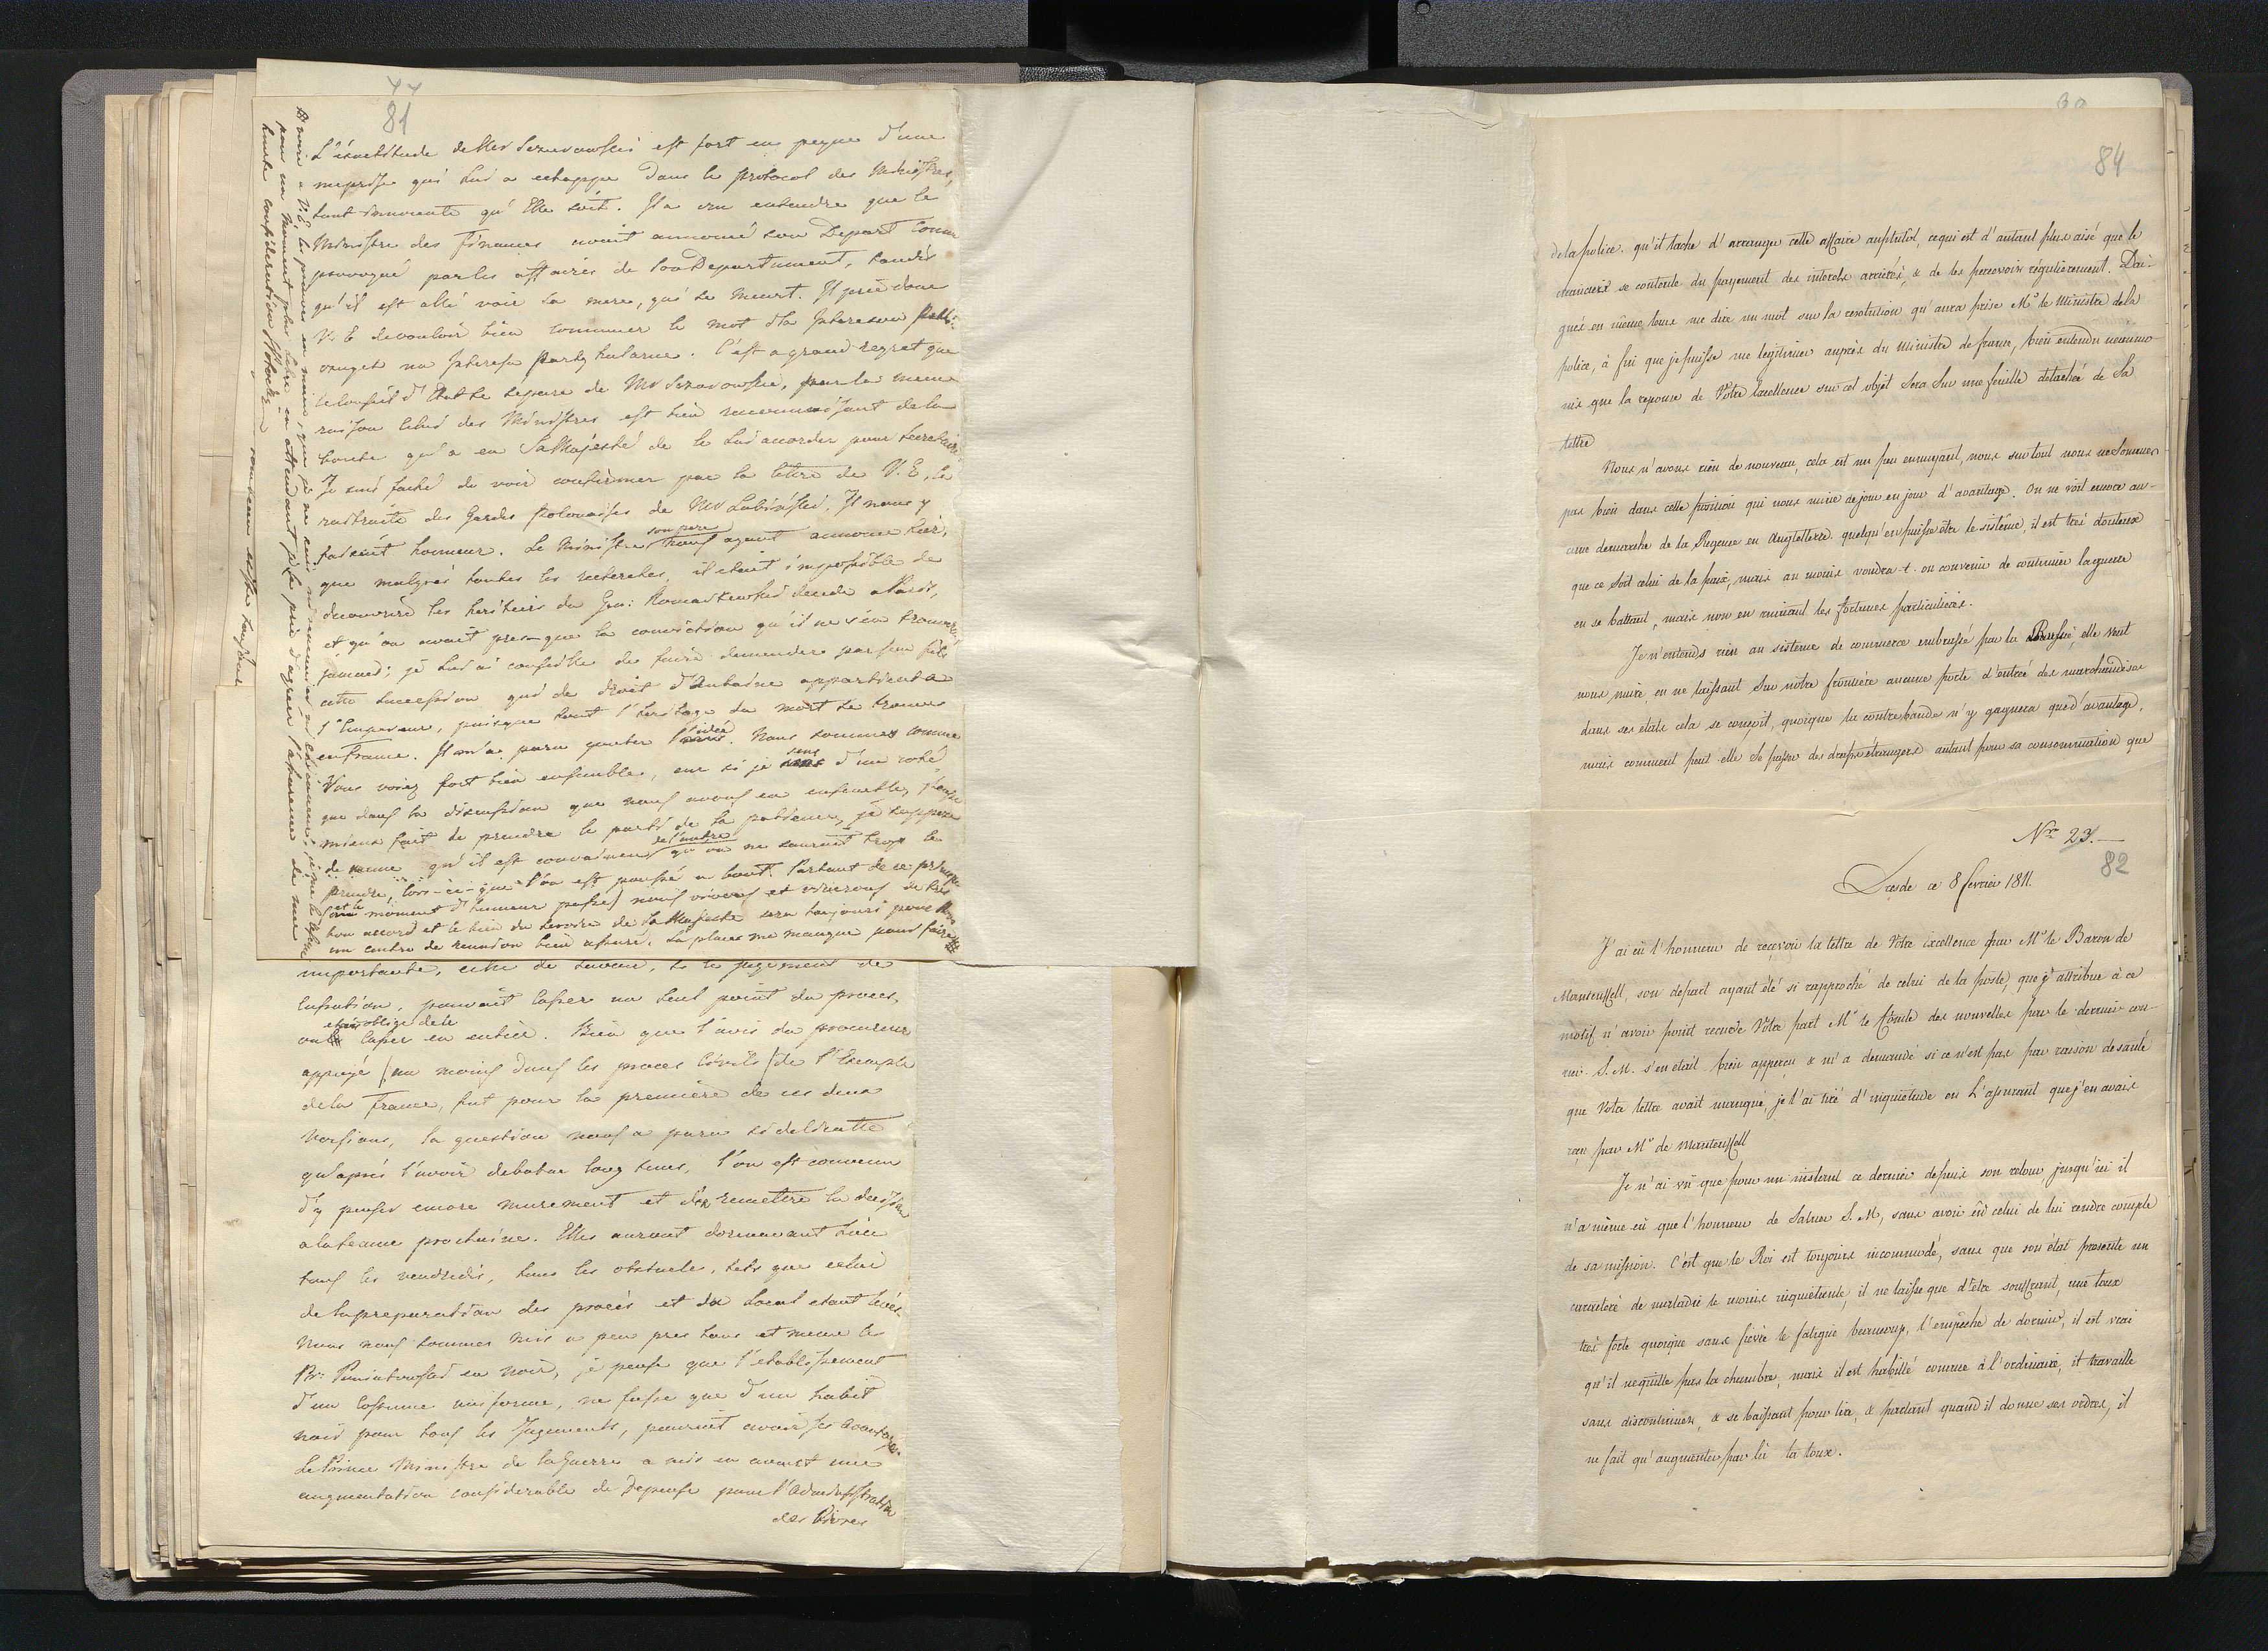 81
L'exactitude de Mr Szaniawski est fort en peyne d'une
meprise qui lui a echappé dans le protocol des Ministres,
tout innocente qu'Elle soit. Il a cru entendre que le
Ministre des Finances avait annoncé son Depart comme
provoqué par les affaires de son Departement, tandis
qu'il est allé voir sa mere, qui se meurt. Il prie donc
V. E. de vouloir bien
C'est a grand regret que
le Conseil d'Etat se separe de Mr
raison celui des Ministres est bien reconnoissant de la
bonté qu'a eu Sa Majesté de le lui accorder pour Secretaire.
Je suis faché de voir confirmer par la lettre de V. E. la
retraite des Gardes Polonaises de Mr Lubinski. Il nous y
faisait honneur. Le Ministre son pere nous ayant annoncé hier,
que malgrés toutes les recherches, il etait impossible de
decouvrir les heritiers du Gen: decedé a Paris,
et qu'on avait presque la conviction qu'il ne s'en trouvera
jamais; je lui ai conseillé de faire demander par son fils
cette succession qui de droit d'Aubaine appartient a
l'Empereur, puisque tout l'heritage du mort se trouve
en France. Il m'a paru gouter l'idée. Nous sommes comme
Vous voiez fort bien ensemble, car si je sens d'un coté
que dans la discussion que nous avons eu ensemble, j'eusse
mieux fait de prendre le parti de la patience, je suppose
de meme qu'il est convaincu de l'autre qu'on ne saurait trop le
prendre, lors-ce-que l'on est poussé a bout. Partant de ce principe
et le moment d'humeur passé) nous vivons et vivrons de tres
bon accord et le bien du service de Sa Majesté sera toujours pour Nous
un centre de reunion bien assuré. La place me manque pour faire
importante, celle de savoir, si le jugement de
Cassation, pouvait casser un seul point du proces,
et etre obligé de le
ou casser en entier. Bien que l'avis du procureur
appuyé (au moins dans les proces Civils) de l'Exemple
de la France, fut pour la premiere de ces deux
versions, la question nous a paru si delicatte
qu'apres l'avoir debatue long tems, l'on est convenu
d'y penser encore murement et d'en remettre la decision
a la seance prochaine. Elles auront dorenavant lieu
tous les vendredis, tous les obstacles, tels que celui
de la preparation des procès et du local etant levés.
Nous nous sommes mis a peu pres tous et meme le
Pr: en noir, je pense que l'etablissement
d'un Costume uniforme, ne fusse que d'un habit
noir pour tous les Jugements, pourrait avoir ses avantages.
Le Prince Ministre de la Guerre a mis en avant une
augmentation considerable de depense pour l'administration
des Vivres
84
de la police. qu'il tache d'arranger cette affaire aussitôt, ce qui est d'autant plus aisé que le
creancier se contente du payement des interets arriérés, & de les percevoir régulièrement. Dai-
gnés en même tems me dire un mot sur la resolution qu'aura prise Mr le Ministre de la
police, à fin que je puisse me legitimer auprès du Ministre de france, bien entendu neanmo-
ins que la reponse de Votre Excellence sur cet objet sera sur une feuille detachée de Sa
lettre
Nous n'avons rien de nouveau, cela est un peu ennuyant, nous surtout nous ne sommes
pas bien dans cette position qui nous mine de jour en jour d'avantage. On ne voit encore au-
cune demarche de la Regence en Angletterre. quelqu'en puisse être le sistême, il est très douteux
que ce soit celui de la paix, mais au moins voudra-t-on convenir de continuer la guerre
en se battant, mais non en ruinant les fortunes particulières.
Je n'entends rien au sisteme de commerce embrassé par la Russie, elle veut
nous nuire en ne laissant sur notre frontière aucune porte d'entrée des marchandises
dans ses états cela se conçoit, quoique la contrebande n'y gagnera que d'avantage,
mais comment peut-elle se passer des draps étrangers autant pour sa consommation que
Nro 23.
82
Dresde ce 8 fevrier 1811.
J'ai eû l'honneur de reçevoir la lettre de Votre Excellence par Mr le Baron de
Manteuffell, son depart ayant été si rapproché de celui de la poste, que j'attribue à ce
motif n'avoir point reçu de Votre part Mr le Comte des nouvelles par le dernier cou-
rier. S. M. s'en était bien apperçu & m'a demandé si ce n'est pas par raison de santé
que Votre lettre avait manqué, je l'ai tiré d'inquietude en L'assurant que j'en avais
reçu par Mr de Manteuffell
Je n'ai vû que pour un instant ce dernier depuis son retour, jusqu'ici il
n'a même eû que l'honneur de Saluer S. M, sans avoir eû celui de lui rendre compte
de sa mission. C'est que le Roi est toujours incommodé, sans que son état presente un
caractere de maladie le moins inquietante, il ne laisse que d'être souffrant, une toux
très forte quoique sans fievre le fatigue beaucoup, l'empêche de dormir, il est vrai
qu'il ne quitte pas la chambre, mais il est habillé comme à l'ordinaire, il travaille
sans discontinuer, & se baissant pour lire, & parlant quand il donne ses ordres, il
ne fait qu'augmenter par là la toux.